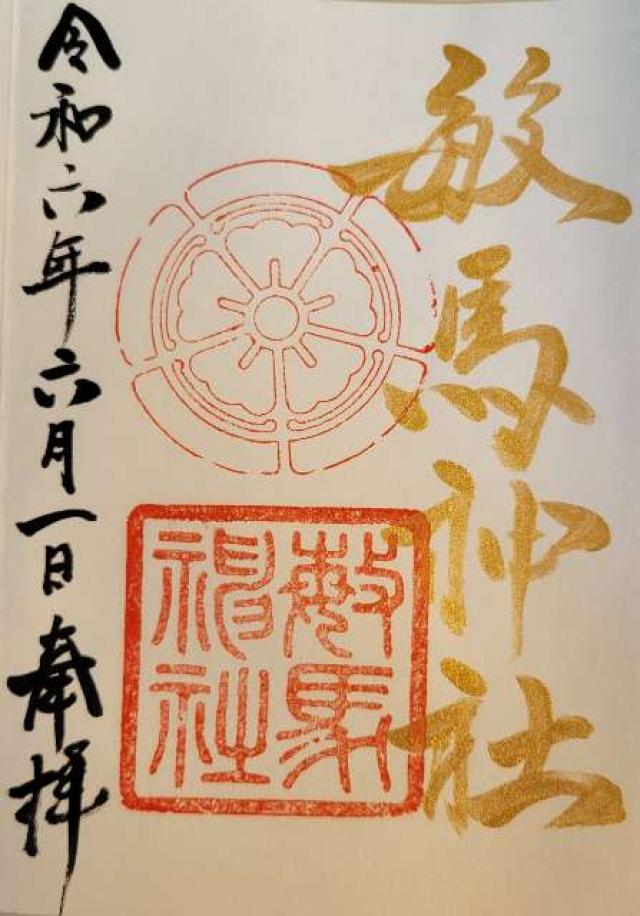 敏馬神社
敏馬神社
令和六年六月一日奉拝